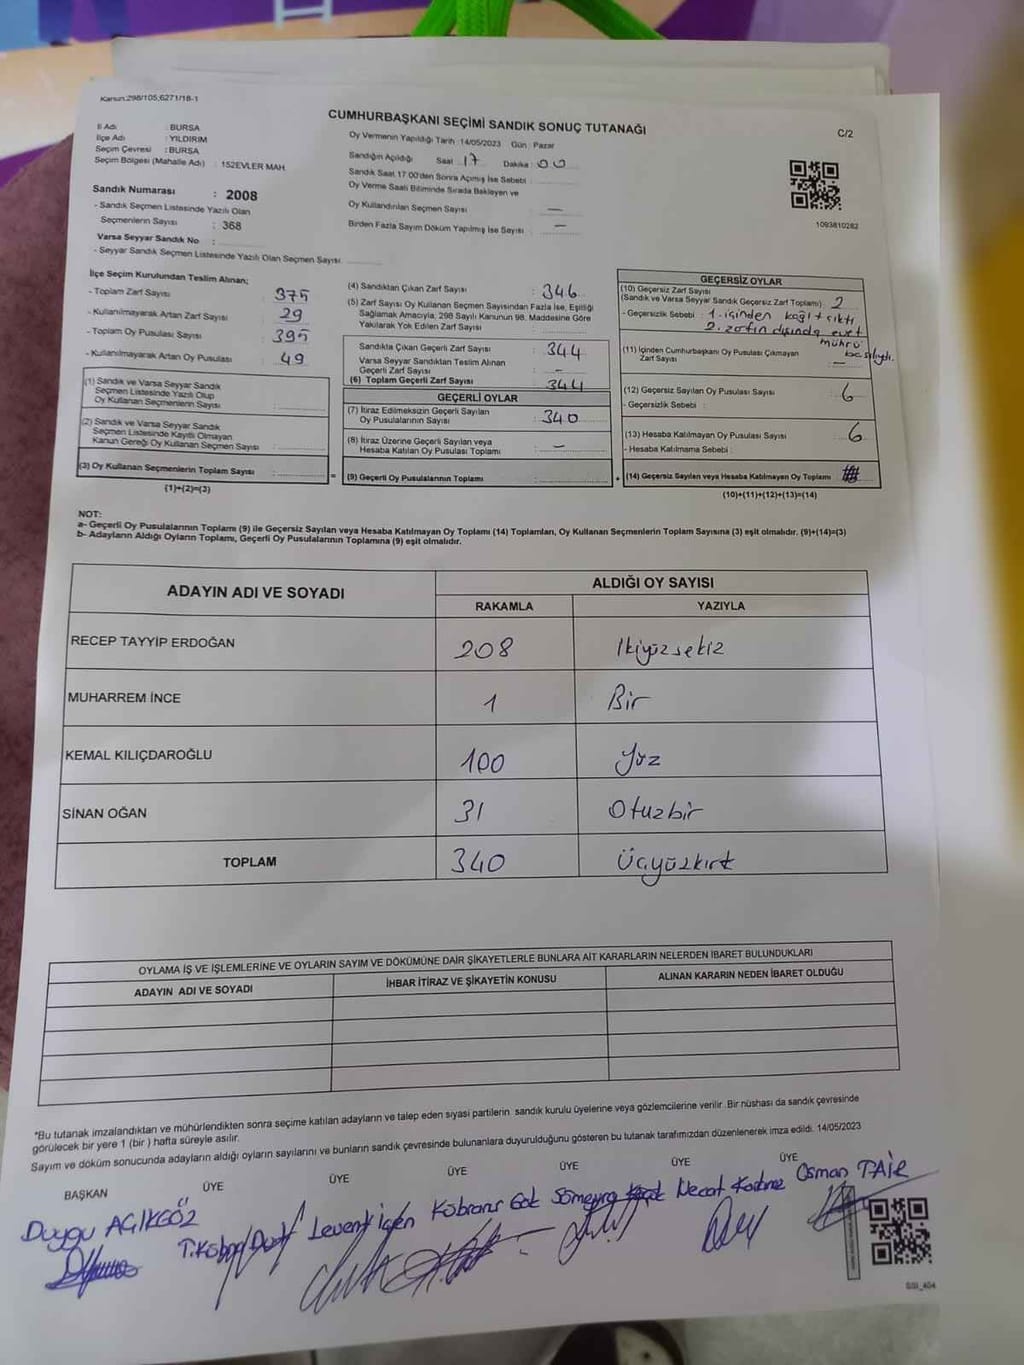 Kanun:298/105,6271/18-1
CUMHURBAŞKANI SEÇİMİ SANDIK SONUÇ TUTANAĞI
C/2
İl Adı : BURSA
İlçe Adı : YILDIRIM
Seçim Çevresi : BURSA
Seçim Bölgesi (Mahalle Adı) : 152EVLER MAH
Sandık Numarası : 2008
- Sandık Seçmen Listesinde Yazılı Olan
Seçmenlerin Sayısı : 368
Varsa Seyyar Sandık No :
- Seyyar Sandık Seçmen Listesinde Yazılı Olan Seçmen Sayısı
Oy Vermenin Yapıldığı Tarih : 14/05/2023 Gün : Pazar
Sandığın Açıldığı Saat 17 Dakika : 00
Sandık Saat 17.00'den Sonra Açılmış İse Sebebi :
Oy Verme Saati Bitiminde Sırada Bekleyen ve
Oy Kullandırılan Seçmen Sayısı : —
Birden Fazla Sayım Döküm Yapılmış İse Sayısı : —
1093810282
İlçe Seçim Kurulundan Teslim Alınan;
- Toplam Zarf Sayısı : 375
- Kullanılmayarak Artan Zarf Sayısı : 29
- Toplam Oy Pusulası Sayısı : 395
- Kullanılmayarak Artan Oy Pusulası : 49
(1) Sandık ve Varsa Seyyar Sandık
Seçmen Listesinde Yazılı Olup
Oy Kullanan Seçmenlerin Sayısı :
(2) Sandık ve Varsa Seyyar Sandık
Seçmen Listesinde Kayıtlı Olmayan
Kanun Gereği Oy Kullanan Seçmen Sayısı :
(3) Oy Kullanan Seçmenlerin Toplam Sayısı :
(1)+(2)=(3)
(4) Sandıktan Çıkan Zarf Sayısı : 346
(5) Zarf Sayısı Oy Kullanan Seçmen Sayısından Fazla İse, Eşitliği
Sağlamak Amacıyla, 298 Sayılı Kanunun 98. Maddesine Göre
Yakılarak Yok Edilen Zarf Sayısı :
Sandıkta Çıkan Geçerli Zarf Sayısı : 344
Varsa Seyyar Sandıktan Teslim Alınan
Geçerli Zarf Sayısı : —
(6) Toplam Geçerli Zarf Sayısı : 344
GEÇERLİ OYLAR
(7) İtiraz Edilmeksizin Geçerli Sayılan
Oy Pusulalarının Sayısı : 340
(8) İtiraz Üzerine Geçerli Sayılan veya
Hesaba Katılan Oy Pusulası Toplamı : —
(9) Geçerli Oy Pusulalarının Toplamı :
GEÇERSİZ OYLAR
(10) Geçersiz Zarf Sayısı
(Sandık ve Varsa Seyyar Sandık Geçersiz Zarf Toplamı) : 2
- Geçersizlik Sebebi : 1. içinden kağıt çıktı
2. zarfın dışında evet
mührü
basılıydı.
(11) İçinden Cumhurbaşkanı Oy Pusulası Çıkmayan
Zarf Sayısı : —
(12) Geçersiz Sayılan Oy Pusulası Sayısı : 6
- Geçersizlik Sebebi :
(13) Hesaba Katılmayan Oy Pusulası Sayısı : 6
- Hesaba Katılmama Sebebi :
(14) Geçersiz Sayılan veya Hesaba Katılmayan Oy Toplamı :
(10)+(11)+(12)+(13)=(14)
NOT:
a- Geçerli Oy Pusulalarının Toplamı (9) ile Geçersiz Sayılan veya Hesaba Katılmayan Oy Toplamı (14) Toplamları, Oy Kullanan Seçmenlerin Toplam Sayısına (3) eşit olmalıdır. (9)+(14)=(3)
b- Adayların Aldığı Oyların Toplamı, Geçerli Oy Pusulalarının Toplamına (9) eşit olmalıdır.
ADAYIN ADI VE SOYADI ALDIĞI OY SAYISI
RAKAMLA YAZIYLA
RECEP TAYYİP ERDOĞAN 208 İkiyüzsekiz
MUHARREM İNCE 1 Bir
KEMAL KILIÇDAROĞLU 100 Yüz
SİNAN OĞAN 31 Otuzbir
TOPLAM 340 Üçyüzkırk
OYLAMA İŞ VE İŞLEMLERİNE VE OYLARIN SAYIM VE DÖKÜMÜNE DAİR ŞİKAYETLERLE BUNLARA AİT KARARLARIN NELERDEN İBARET BULUNDUKLARI
ADAYIN ADI VE SOYADI İHBAR İTİRAZ VE ŞİKAYETİN KONUSU ALINAN KARARIN NEDEN İBARET OLDUĞU
*Bu tutanak imzalandıktan ve mühürlendikten sonra seçime katılan adayların ve talep eden siyasi partilerin sandık kurulu üyelerine veya gözlemcilerine verilir. Bir nüshası da sandık çevresinde
görülecek bir yere 1 (bir ) hafta süreyle asılır.
Sayım ve döküm sonucunda adayların aldığı oyların sayılarını ve bunların sandık çevresinde bulunanlara duyurulduğunu gösteren bu tutanak tarafımızdan düzenlenerek imza edildi. 14/05/2023
BAŞKAN ÜYE ÜYE ÜYE ÜYE ÜYE ÜYE
Duygu AÇIKGÖZ Levent Kübranur Gök Sümeyra Necat Osman TAİR